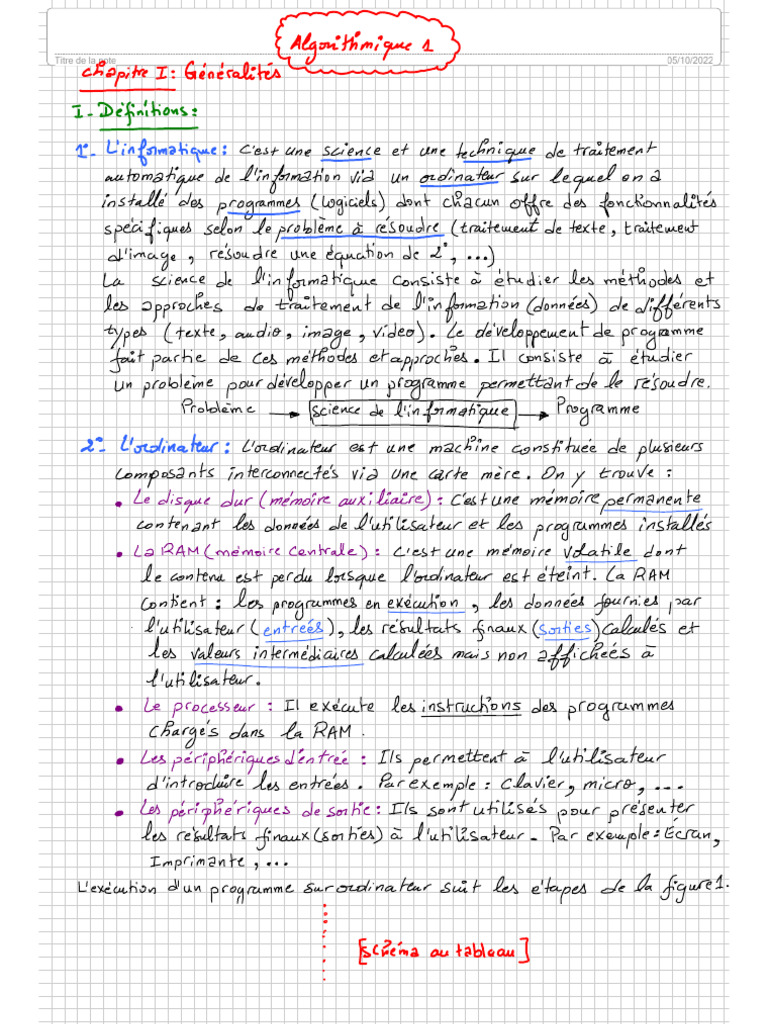 Algorithmique 1
Titre de la note 05/10/2022
Chapitre I : Généralités
I - Définitions :
1°- L'informatique : C'est une science et une technique de traitement
automatique de l'information via un ordinateur sur lequel on a
installé des programmes (logiciels) dont chacun offre des fonctionnalités
spécifiques selon le problème à résoudre (traitement de texte, traitement
d'image, résoudre une équation de 2°, ...)
La science de l'informatique consiste à étudier les méthodes et
les approches de traitement de l'information (données) de différents
types (texte, audio, image, video). Le développement de programme
fait partie de ces méthodes et approches. Il consiste à étudier
un problème pour développer un programme permettant de le résoudre.
Problème → science de l'informatique → Programme
2°- L'ordinateur : L'ordinateur est une machine constituée de plusieurs
composants interconnectés via une carte mère. On y trouve :
• Le disque dur (mémoire auxiliaire) : C'est une mémoire permanente
contenant les données de l'utilisateur et les programmes installés
• La RAM (mémoire centrale) : C'est une mémoire volatile dont
le contenu est perdu lorsque l'ordinateur est éteint. La RAM
contient : les programmes en exécution, les données fournies par
l'utilisateur (entrées), les résultats finaux (sorties) calculés et
les valeurs intermédiaires calculées mais non affichées à
l'utilisateur.
• Le processeur : Il exécute les instructions des programmes
chargés dans la RAM.
• Les périphériques d'entrée : Ils permettent à l'utilisateur
d'introduire les entrées. Par exemple : Clavier, micro, ...
• Les périphériques de sortie : Ils sont utilisés pour présenter
les résultats finaux (sorties) à l'utilisateur. Par exemple : Écran,
Imprimante, ...
L'exécution d'un programme sur ordinateur suit les étapes de la figure 1.
[schéma au tableau]